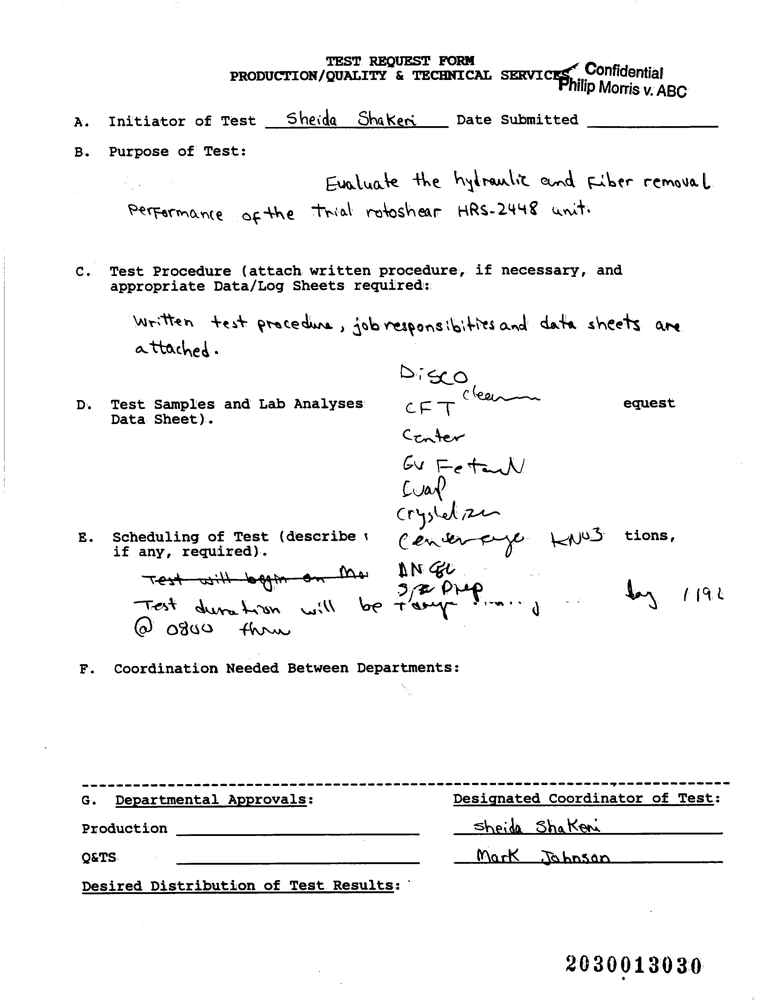 TEST REQUEST FORM
PRODUCTION/QUALITY & TECHNICAL SERVICES
Confidential
Philip Morris v. ABC
A. Initiator of Test Sheida Shakeri Date Submitted
B. Purpose of Test:
Evaluate the hydraulic and Fiber removal
Performance of the trial rotoshear HRS-2448 unit.
C. Test Procedure (attach written procedure, if necessary, and
appropriate Data/Log Sheets required:
Written test procedure, job responsibilities and data sheets are
attached.
DISCO
CFT clean
D. Test Samples and Lab Analyses equest
Data Sheet).
Center
Evap
E. Scheduling of Test (describe tions,
if any, required).
KNO3
Test will begin on Mo
Prep
Test duration will be day 1192
@ 0800 thru
F. Coordination Needed Between Departments:
G. Departmental Approvals: Designated Coordinator of Test:
Production Sheida Shakeri
Q&TS Mark Johnson
Desired Distribution of Test Results:
2030013030